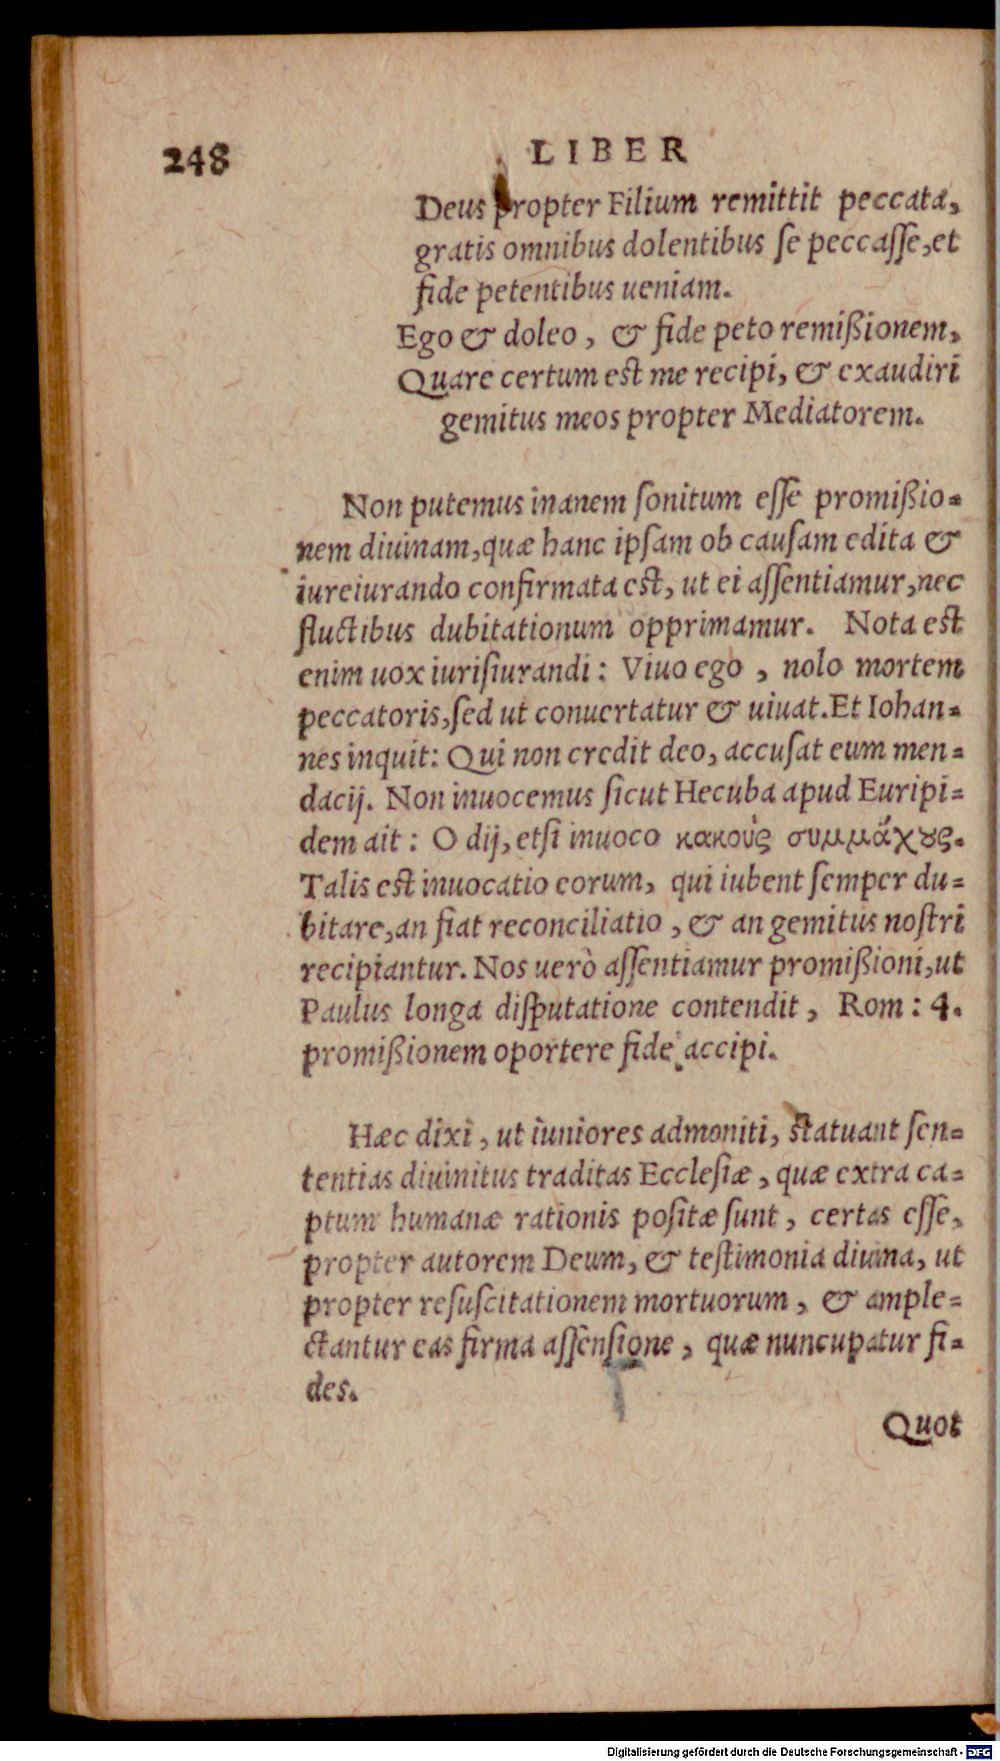 248 LIBER
Deus propter Filium remittit peccata,
gratis omnibus dolentibus ſe peccaſſe, et
fide petentibus ueniam.
Ego & doleo, & fide peto remißionem,
Quare certum est me recipi, & exaudiri
gemitus meos propter Mediatorem.
Non putemus inanem ſonitum eſſe promißio=
nem diuinam, quæ hanc ipſam ob cauſam edita &
iureiurando confirmata est, ut ei aſſentiamur, nec
fluctibus dubitationum opprimamur. Nota est
enim uox iuriſiurandi: Viuo ego, nolo mortem
peccatoris, ſed ut conuertatur & uiuat. Et Iohan=
nes inquit: Qui non credit deo, accuſat eum men=
dacij. Non inuocemus ſicut Hecuba apud Euripi=
dem ait: O dij, etſi inuoco κακοὺς συμμάχȣς.
Talis est inuocatio eorum, qui iubent ſemper du=
bitare, an fiat reconciliatio, & an gemitus noſtri
recipiantur. Nos uerò aſſentiamur promißioni, ut
Paulus longa diſputatione contendit, Rom: 4.
promißionem oportere fide accipi.
Hæc dixi, ut iuniores admoniti, statuant ſen=
tentias diuinitus traditas Eccleſiæ, quæ extra ca=
ptum humanæ rationis poſitæ ſunt, certas eſſe,
propter autorem Deum, & teſtimonia diuina, ut
propter reſuſcitationem mortuorum, & ample=
ctantur eas firma aſſenſione, quæ nuncupatur fi=
des.
Quot
Digitalisierung gefördert durch die Deutsche Forschungsgemeinschaft - DFG